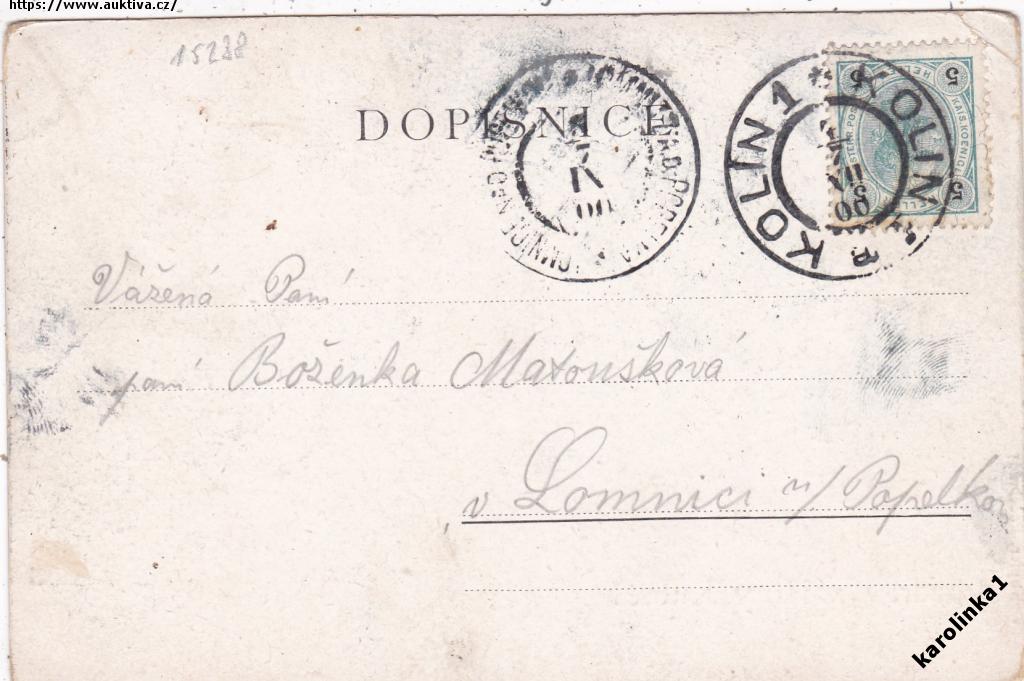 https://www.auktiva.cz/
15238
DOPISNICE
KOLIN 1 KOLIN
5 5 5
Vážená Paní
paní Boženka Matoušková
v Lomnici n/Popelkou
karolinka1